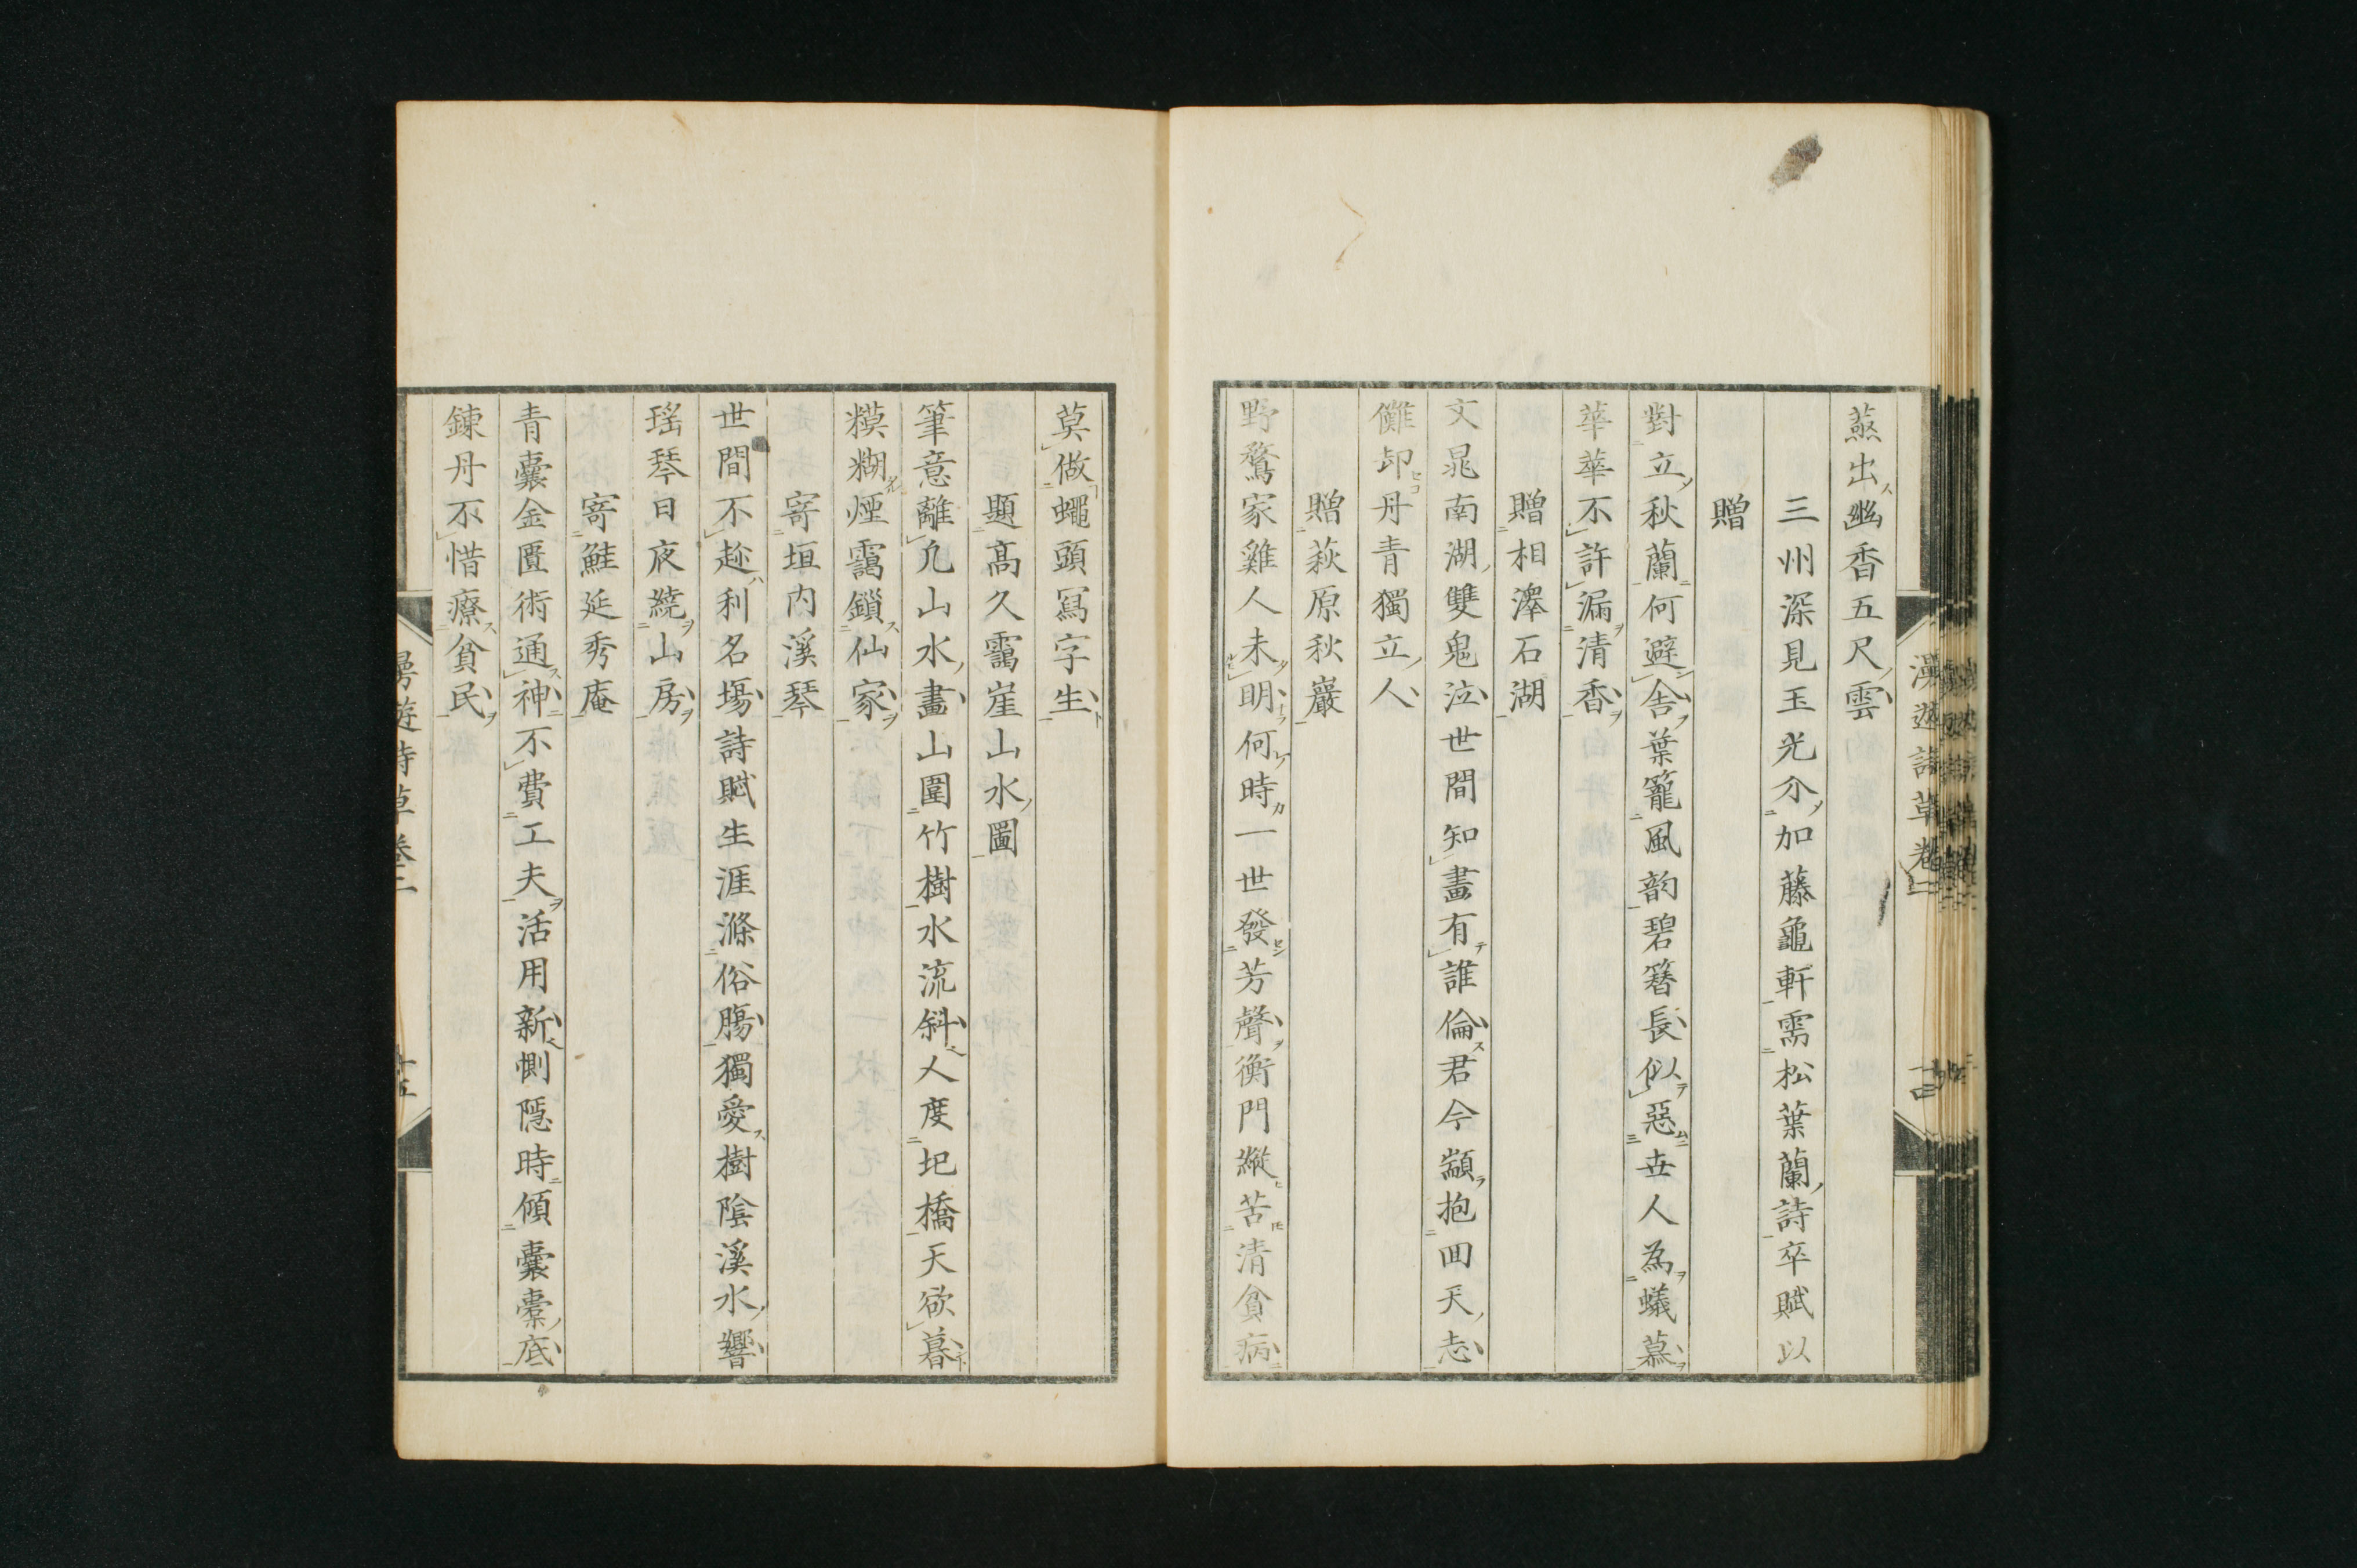 蒸出幽香五尺雲
三州深見玉光介加藤龜軒需松葉蘭詩卒賦以
贈
對立秋蘭何避舍葉籠風韵碧簪長似惡世人為蟻慕
華華不許漏清香
贈相澤石湖
文晁南湖雙鬼泣世間知畫有誰倫君今顓抱回天志
儺却丹青獨立人
贈萩原秋巖
野鶩家雞人未明何時一世發芳聲衡門縱苦清貧病
莫做蠅頭寫字生
題高久靄崖山水圖
筆意離凡山水畫山圍竹樹水流斜人度圯橋天欲暮
糢糊煙靄鎖仙家
寄垣内溪琴
世間不趁利名場詩賦生涯滌俗膓獨愛樹陰溪水響
瑤琴日夜繞山房
寄鮭延秀庵
青囊金匱術通神不費工夫活用新惻隱時傾囊橐底
鍊丹不惜療貧民
漫遊詩草卷二
十四
漫遊詩草卷二
十五